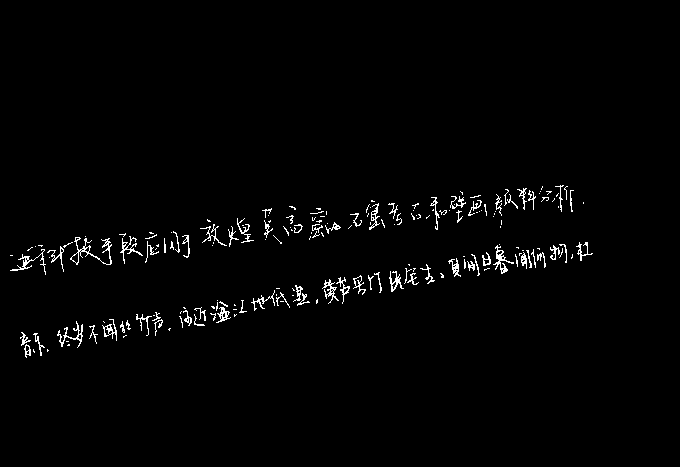 进科技手段应用于敦煌莫高窟的石窟考古和壁画颜料分析.
音乐,终岁不闻丝竹声.住近湓江地低湿,黄芦苦竹绕宅生、其间旦暮闻何物,杜